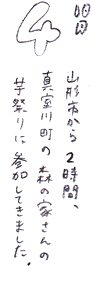 4
10月
山形市から2時間、
真室川町の森の家さんの
芋祭りに参加してきました。